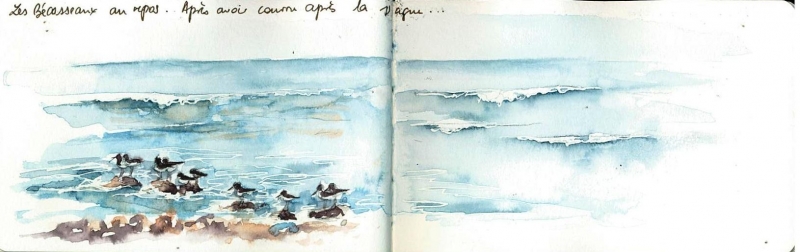 Les Bécasseaux au repos. Après avoir couru après la vague...